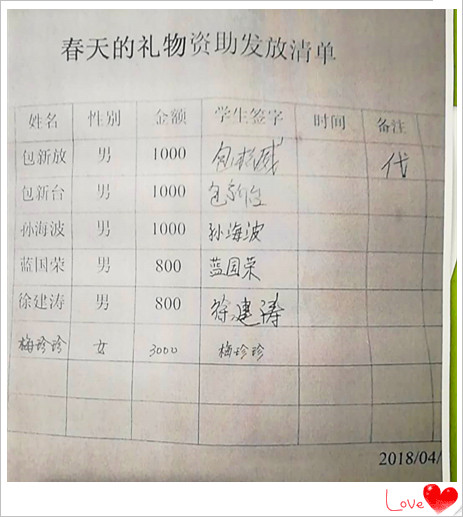 春天的礼物资助发放清单
姓名 性别 金额 学生签字 时间 备注
包新放 男 1000 代
包新台 男 1000 包新台
孙海波 男 1000 孙海波
蓝国荣 男 800 蓝国荣
徐建涛 男 800 徐建涛
梅珍珍 女 3000 梅珍珍
2018/04/
Love